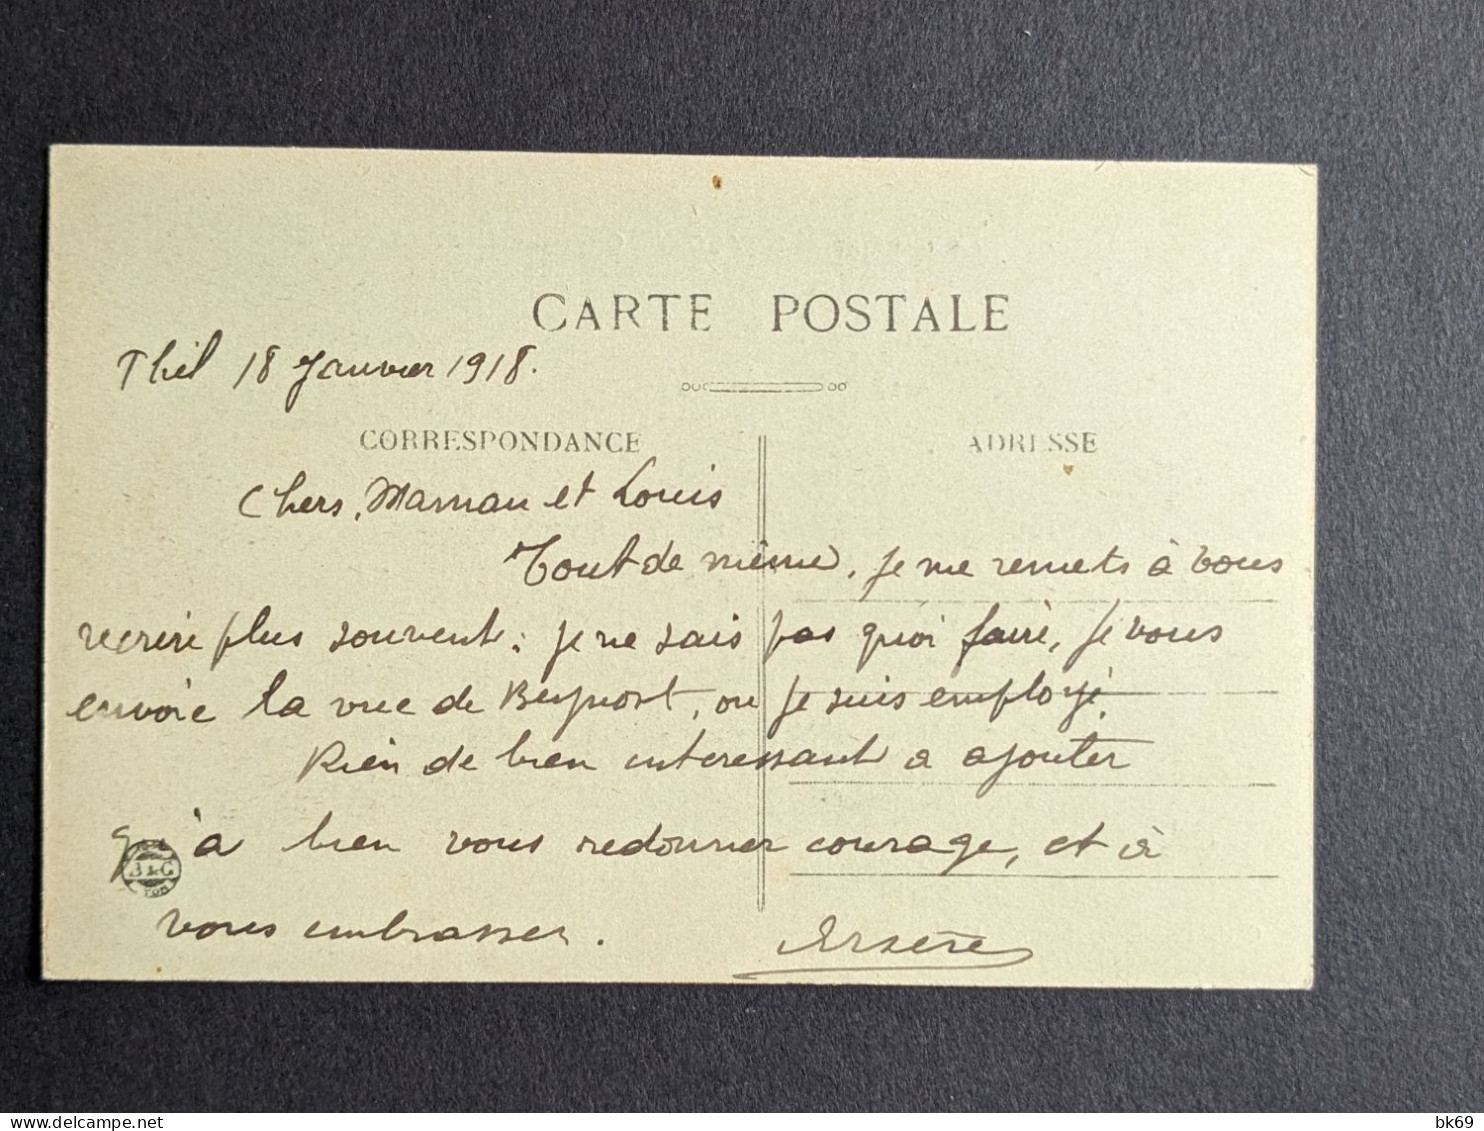 CARTE POSTALE
Thil 18 Janvier 1918.
CORRESPONDANCE
ADRESSE
Chers, Maman et Louis
Tout de même, je me remets à vous
recrire plus souvent; je ne sais pas quoi faire, je vous
envoie la vue de Beynost, ou je suis employé.
Rien de bien interessant a ajouter
qu'a bien vous redonner courage, et à
B & C
vous embrasser.
Arsène
delcampe.net
bk69